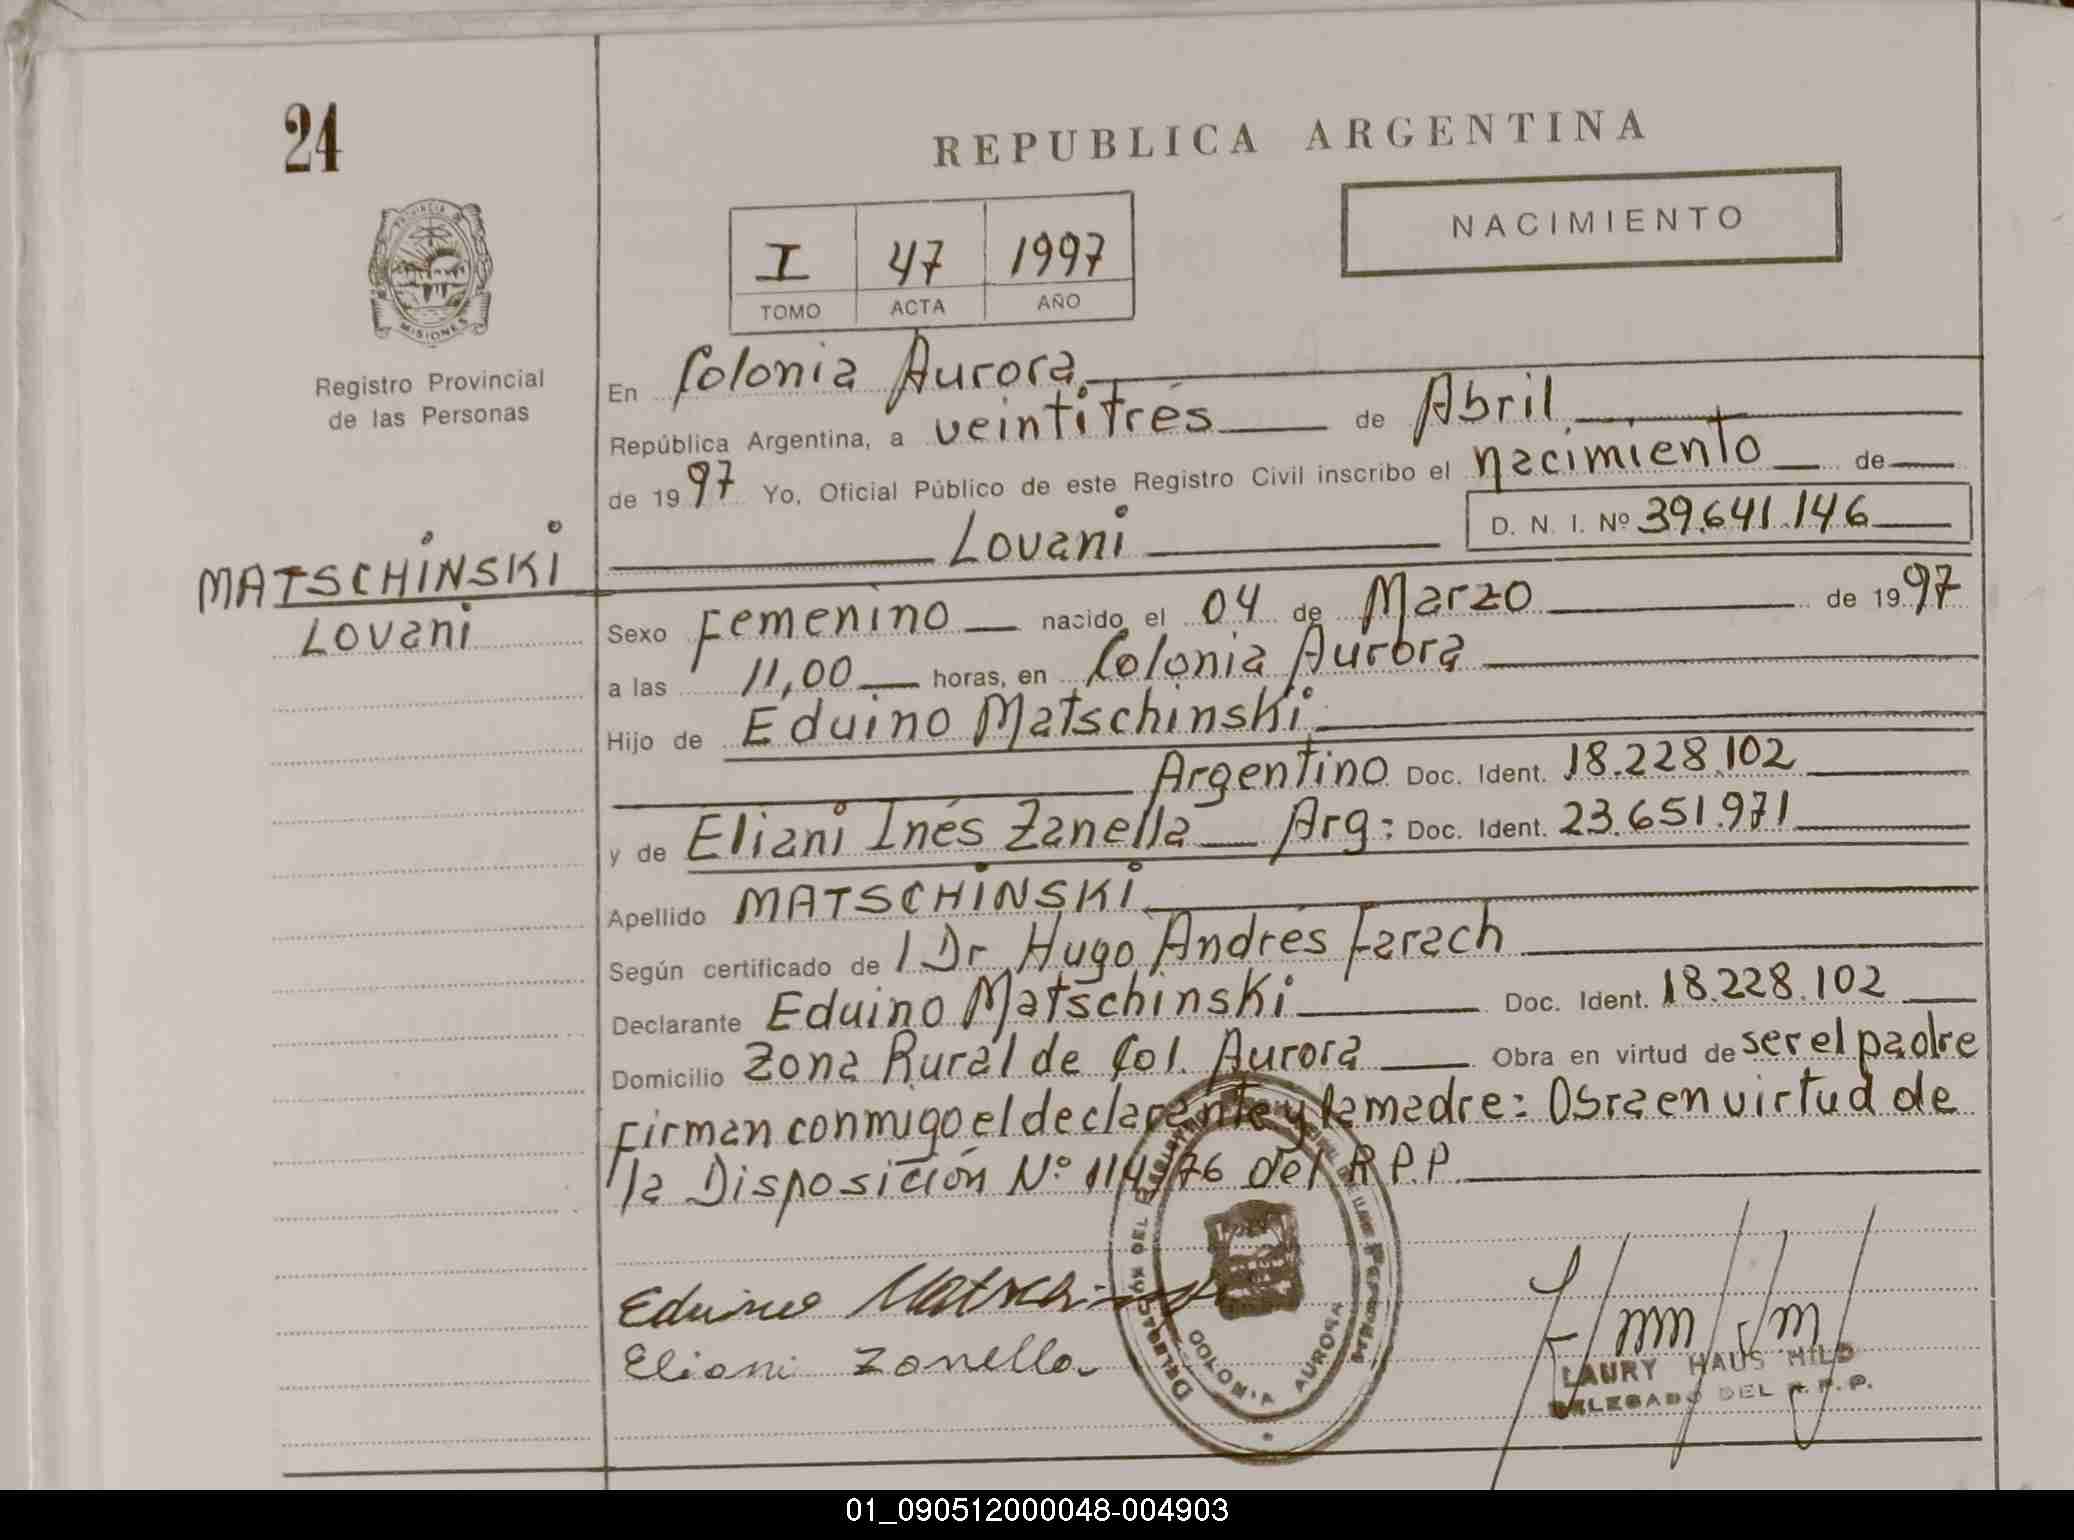 24
REPUBLICA ARGENTINA
NACIMIENTO
PROVINCIA DE
MISIONES
Registro Provincial
de las Personas
I 47 1997
TOMO ACTA AÑO
En Colonia Aurora
República Argentina, a veintitrés de Abril
de 1997 Yo, Oficial Público de este Registro Civil inscribo el nacimiento de
Lovani D. N. I. Nº 39.641.146
MATSCHINSKI
Lovani
Sexo Femenino nacido el 04 de Marzo de 1997
a las 11,00 horas, en Colonia Aurora
Hijo de Eduino Matschinski
Argentino Doc. Ident. 18.228.102
y de Eliani Inés Zanella Arg: Doc. Ident. 23.651.971
Apellido MATSCHINSKI
Según certificado de l Dr Hugo Andrés Farach
Declarante Eduino Matschinski Doc. Ident. 18.228.102
Domicilio Zona Rural de Col. Aurora Obra en virtud de ser el padre
Firman conmigo el declarante y la madre: Obra en virtud de
la Disposición Nº 114/76 del R.P.P.
Eduino Matschinski
Eliani Zanella
DELEGACION DEL REGISTRO PROVINCIAL DE LAS PERSONAS
COLONIA AURORA
LAURY HAUS MILD
DELEGADO DEL R.P.P.
01_090512000048-004903